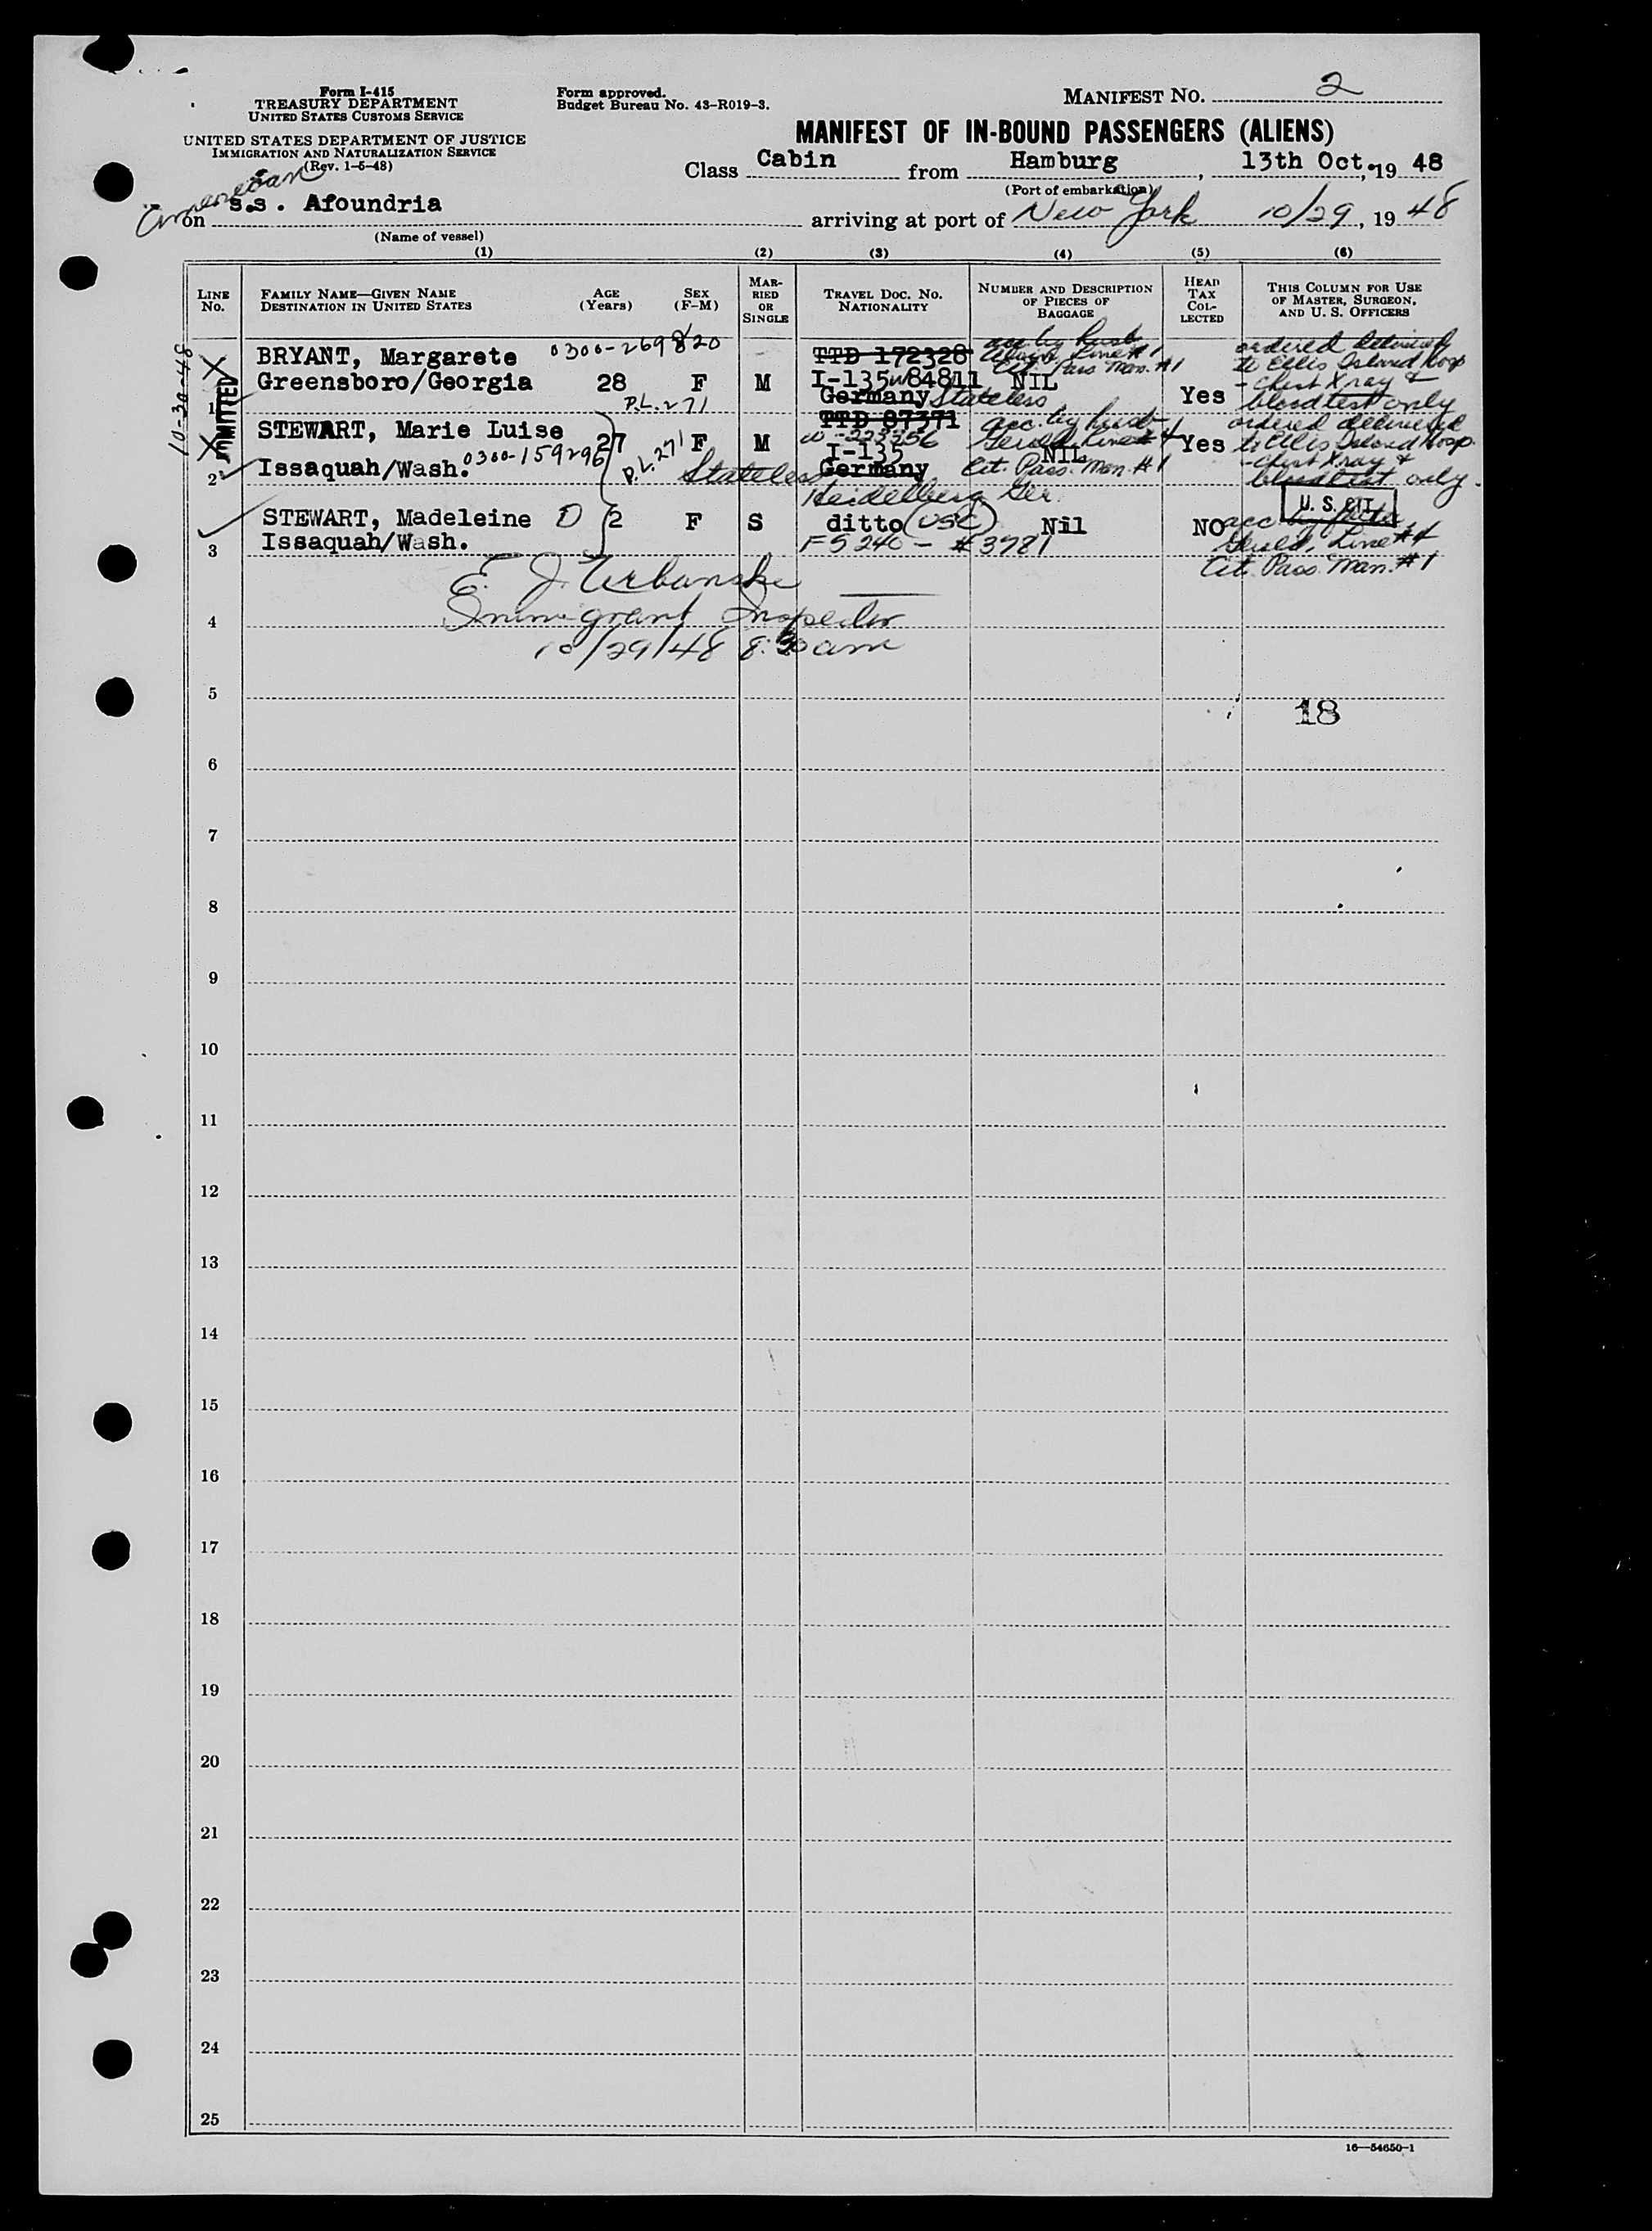 Form I-415
TREASURY DEPARTMENT
UNITED STATES CUSTOMS SERVICE
UNITED STATES DEPARTMENT OF JUSTICE
IMMIGRATION AND NATURALIZATION SERVICE
(Rev. 1-6-48)
Form approved.
Budget Bureau No. 43-R019-3.
MANIFEST NO. 2
MANIFEST OF IN-BOUND PASSENGERS (ALIENS)
Class Cabin from Hamburg, 13th Oct., 19 48
(Port of embarkation)
American
on s.s. Afoundria arriving at port of New York 10/29, 19 48
(Name of vessel)
(1) (2) (3) (4) (5) (6)
LINE NO.
FAMILY NAME—GIVEN NAME
DESTINATION IN UNITED STATES
AGE (Years)
SEX (F-M)
MARRIED OR SINGLE
TRAVEL DOC. NO.
NATIONALITY
NUMBER AND DESCRIPTION OF PIECES OF BAGGAGE
HEAD TAX COLLECTED
THIS COLUMN FOR USE OF MASTER, SURGEON, AND U. S. OFFICERS
10-30-48
ADMITTED
X
1
BRYANT, Margarete 0300-269820
Greensboro/Georgia 28 F M
P.L. 271
TTD 172328
I-135 W84811
Germany Stateless
acc by husb
Line #1
Cit. Pass Man. #1
NIL
Yes
ordered delivered
to Ellis Island Hosp
- chest Xray &
blood test only
X
2
STEWART, Marie Luise 27 F M
Issaquah/Wash. 0300-159296
P.L. 271
Stateless
TTD 87371
W-223356
I-135
Germany
acc. by husb
Gerald Line #4
NIL
Cit. Pass. Man. #1
Yes
ordered delivered
to Ellis Island Hosp.
- chest Xray &
blood test only.
Heidelberg Ger.
3
STEWART, Madeleine D 2 F S
Issaquah/Wash.
ditto (USC)
FS 240 - #3781
Nil
NO
U. S. CIT.
acc. by father
Gerald, Line #4
Cit. Pass. Man. #1
E. J. Urbanski
Immigrant Inspector
10/29/48 8:30 am
4
5
18
6
7
8
9
10
11
12
13
14
15
16
17
18
19
20
21
22
23
24
25
16—54650-1